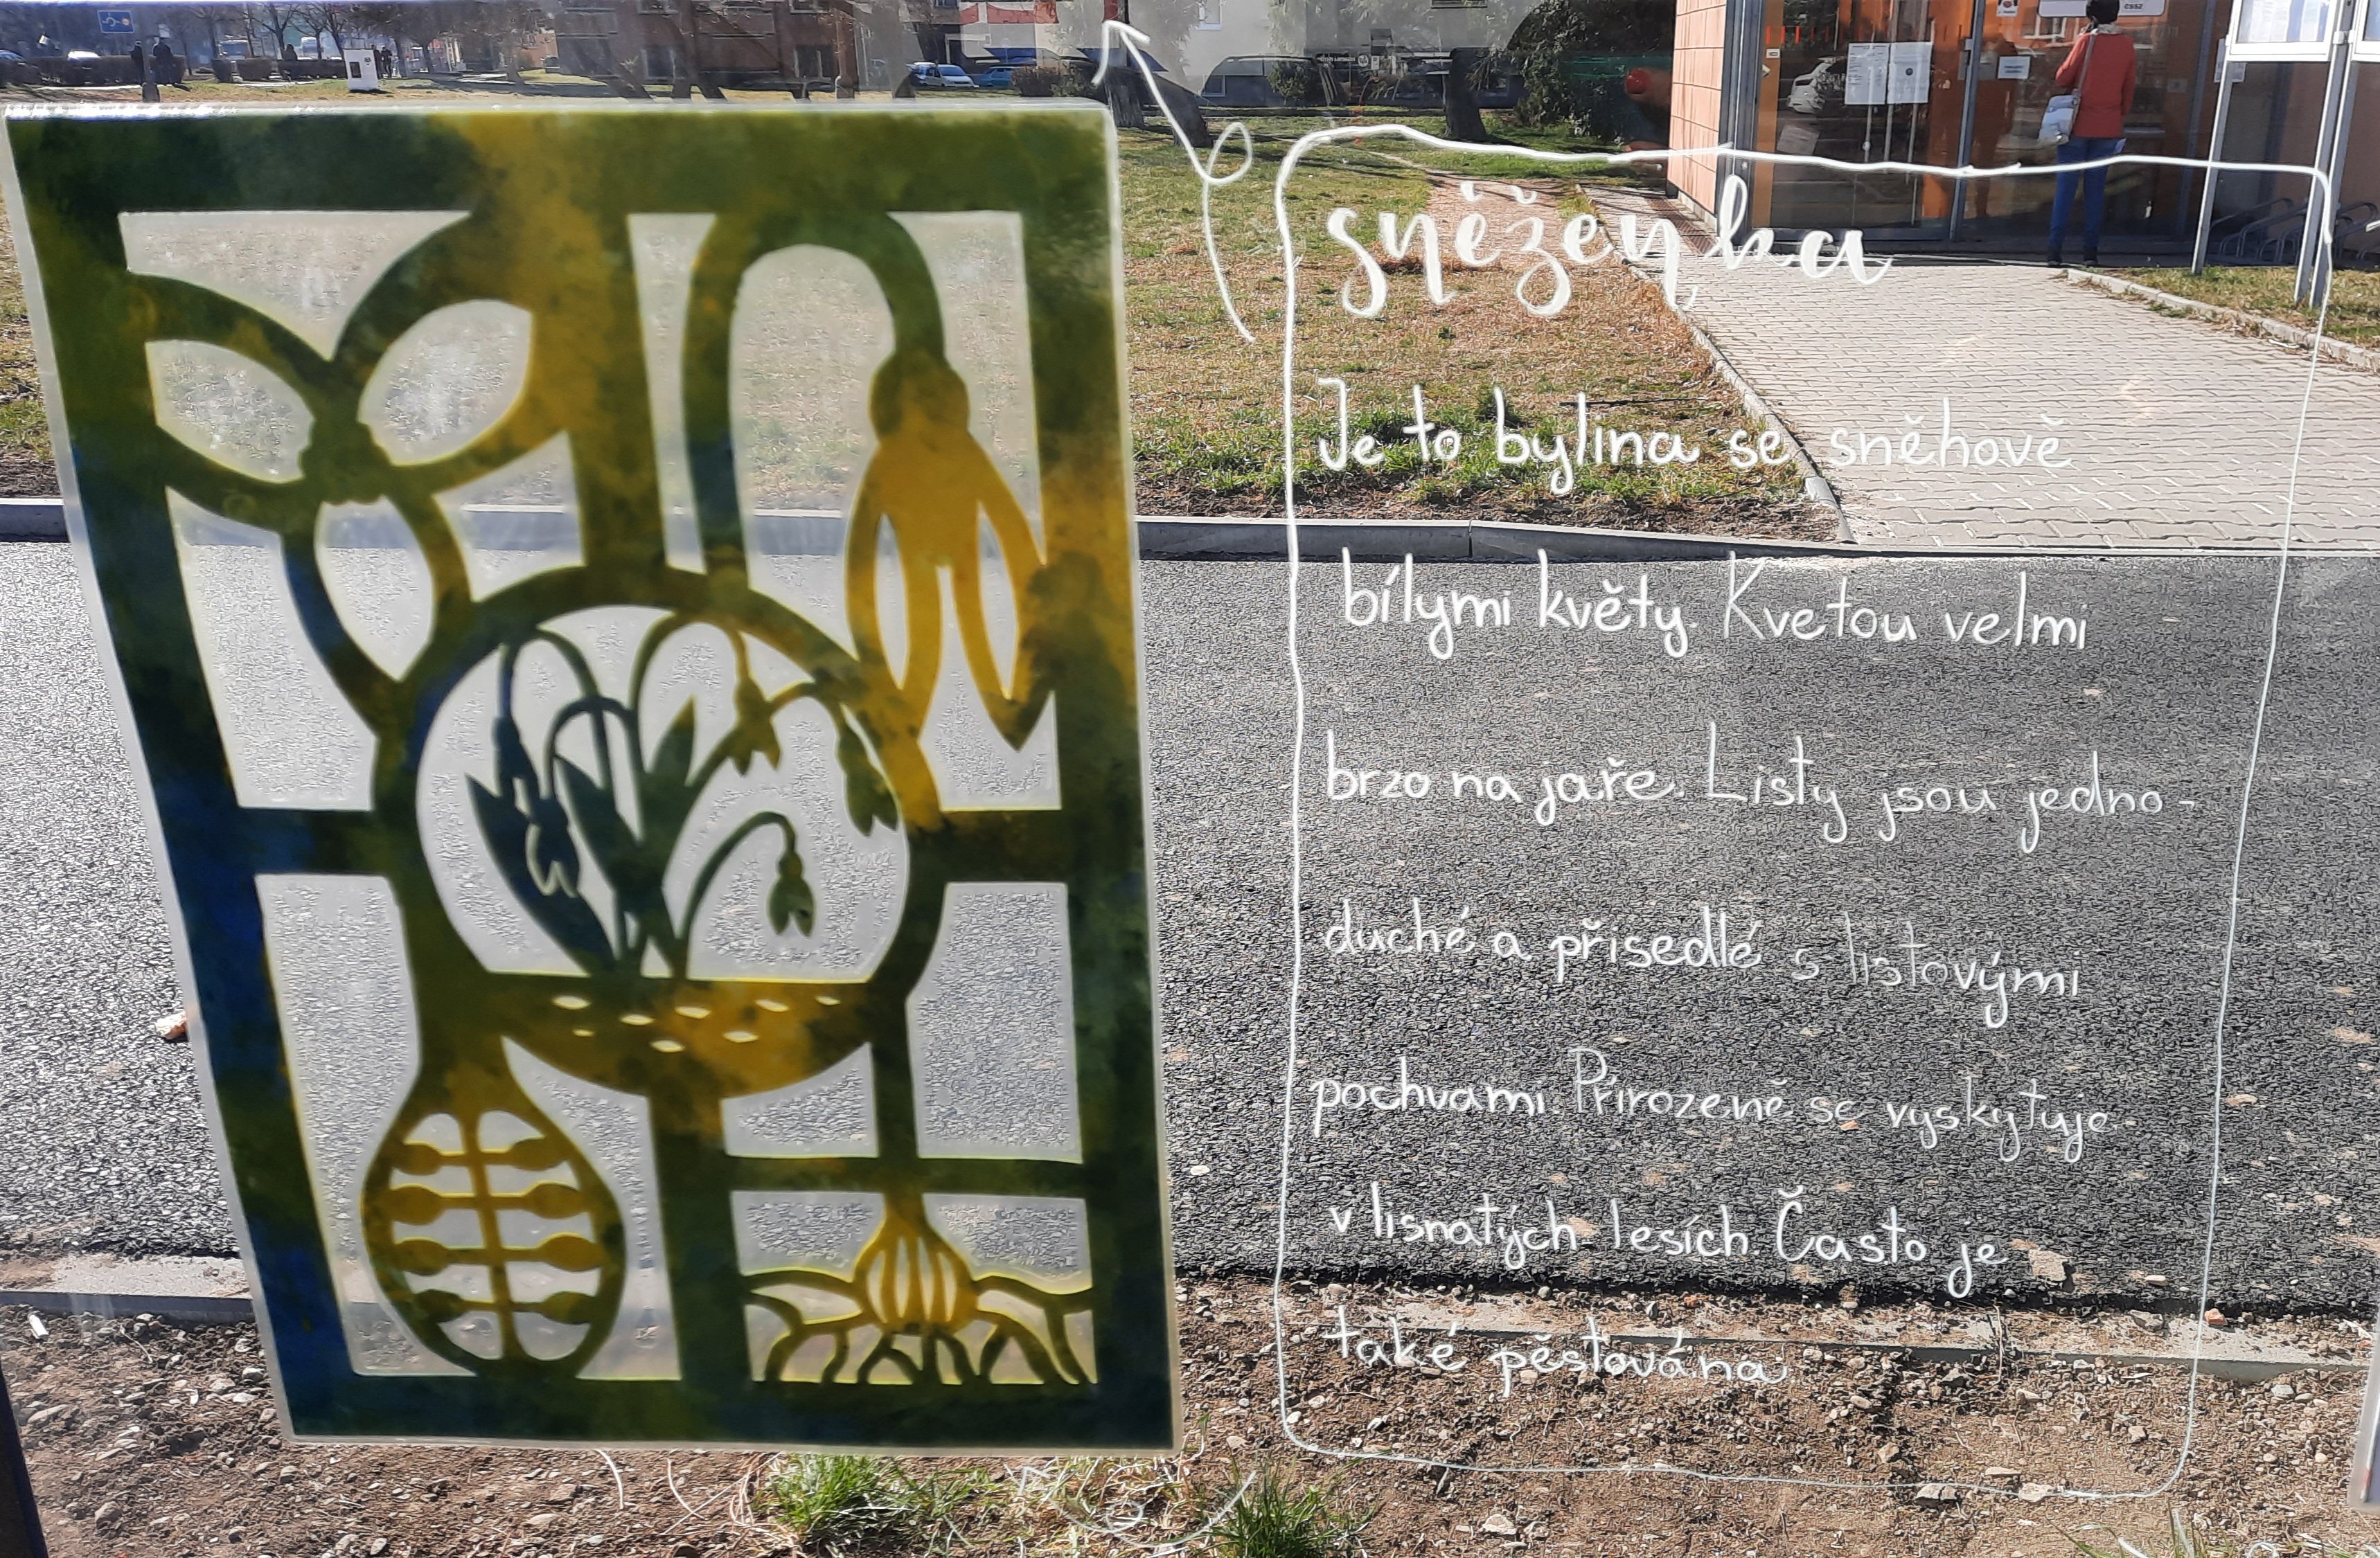 ČSSZ
sněženka
Je to bylina se sněhově
bílými květy. Kvetou velmi
brzo na jaře. Listy jsou jedno-
duché a přisedlé s listovými
pochvami. Přirozeně se vyskytuje
v lisnatých lesích. Často je
také pěstována